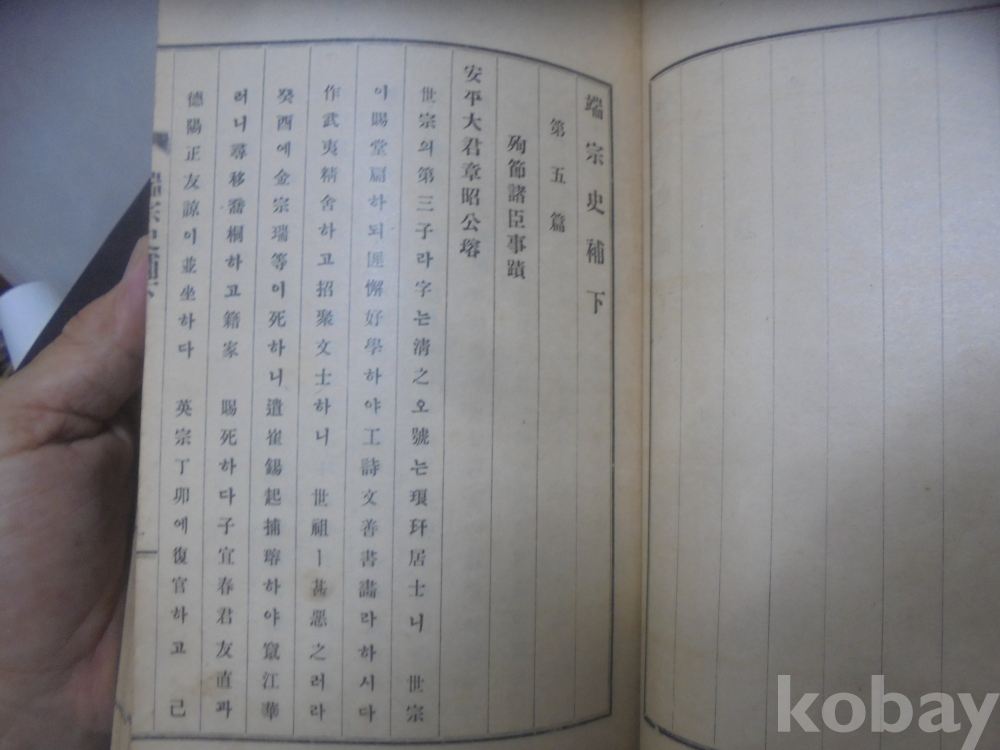 端宗史補下
第五篇
殉節諸臣事蹟
安平大君章昭公瑢
世宗의第三子라字는淸之오號는琅玕居士니 世宗
이賜堂扁하되匪懈好學하야工詩文善書畵라하시다
作武夷精舍하고招聚文士하니 世祖ㅣ甚惡之러라
癸酉에金宗瑞等이死하니遣崔錫起捕瑢하야竄江華
러니尋移喬桐하고籍家 賜死하다子宜春君友直과
德陽正友諒이並坐하다 英宗丁卯에復官하고 己
kobay